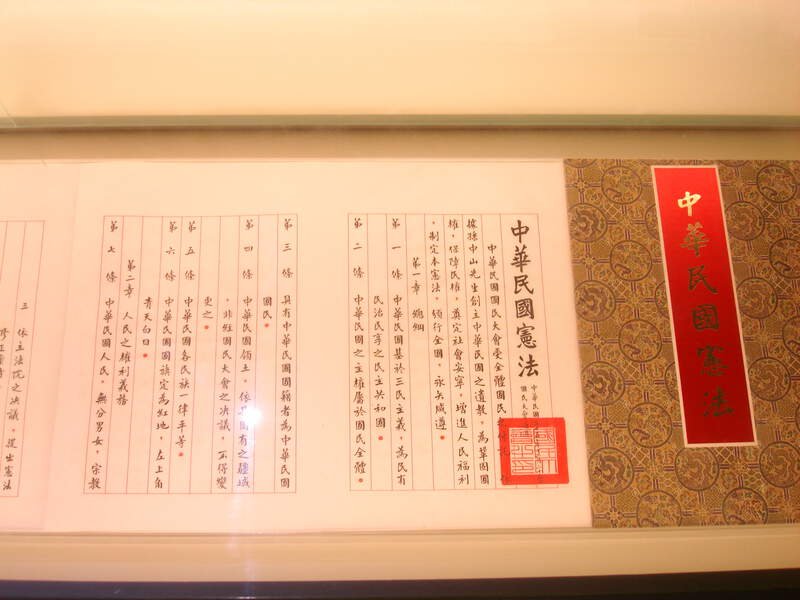 中華民國憲法
中華民國憲法
中華民國
國民大會
中華民國國民大會受全體國民
據孫中山先生創立中華民國之遺教，為鞏固國
權，保障民權，奠定社會安寧，增進人民福利
，制定本憲法，頒行全國，永矢咸遵。
第一章 總綱
第一條 中華民國基於三民主義，為民有
民治民享之民主共和國。
第二條 中華民國之主權屬於國民全體。
第三條 具有中華民國國籍者為中華民國
國民。
第四條 中華民國領土，依其固有之疆域
，非經國民大會之決議，不得變
更之。
第五條 中華民國各民族一律平等。
第六條 中華民國國旗定為紅地，左上角
青天白日。
第二章 人民之權利義務
第七條 中華民國人民，無分男女，宗教
三 依立法院之決議，提出憲法
修正案